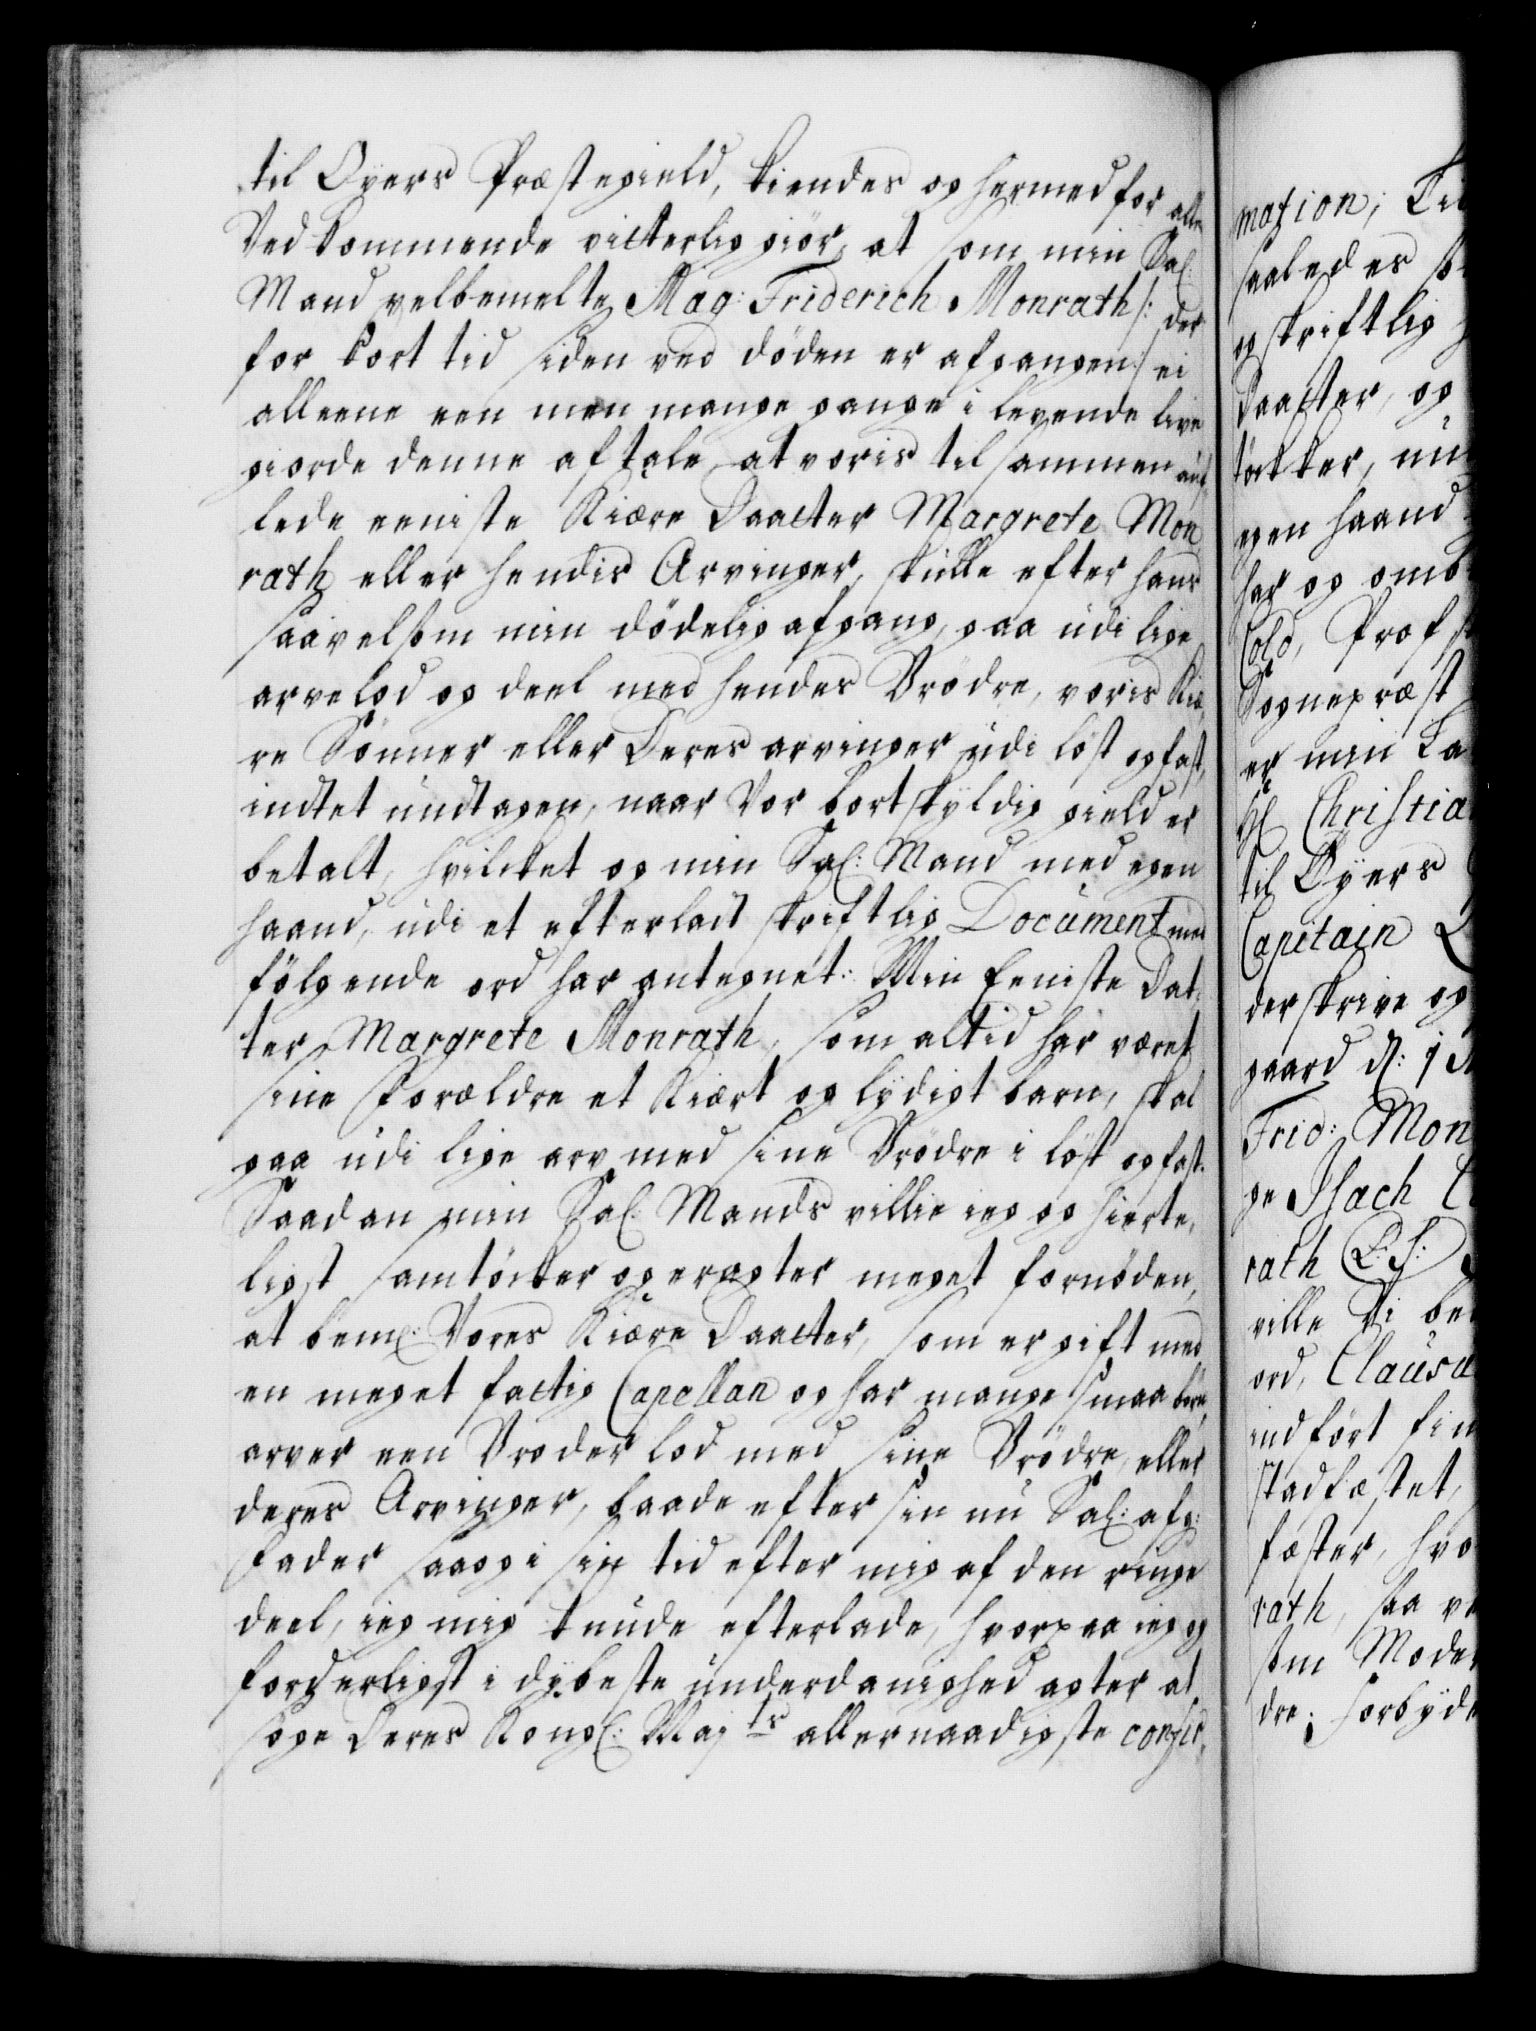 til Oyers Præstegield, kiendes og hermed for alle
Vedkommende vitterlig giør, at som min Sal:
Mand velbemelte Mag: Friderich Monrath /: der
for kort tid siden ved døden er afgangen :/ ei
alleene een men mange gange i levende live
giorde denne aftale at voris til sammen auf-
lede eeniste Kiære Daatter Margrete Mon
rath eller hendis Arvinger, skulle efter hans
saavelsom min dødelig afgang, gaa udi lige
arvelod og deel med hendes Brødre, voris Kiæ,
re Sønner eller Deres arvinger udi løst og fast,
indtet undtagen, naar Vor bortskyldig gield er
betalt, hvilcket og min Sal: Mand med egen
haand, udi et efterladt skriftlig Document med
følgende ord har antegnet: Min Eeniste Dat-
ter Margrete Monrath, som altid har været
sine Forældre et Kiært og lydigt barn, skal
gaa udi lige arv med sine Brødre i løst og fast.
Saadan min Sal: Mands villie ieg og hierte,
ligst samtøcker og eragter meget fornøden,
at bem: Vores Kiære Daatter, som er gift med
en meget fattig Capellan og har mange smaa børn,
arver een Broder lod med sine Brødre, eller
deres Arvinger, baade efter sin nu Sal: afg:
Fader saa og i sin tid efter mig af den ringe
deel, ieg mig kunde efterlade, hvorpaa ieg og
forderligst i dybeste underdanighed agter at
søge Deres Kongl: Maj ts allernaadigste confir,
mation; Ti
saaledes
og skriftlig
Daatter, og
tøcker, nu
egen haand
har og omb
Cold, Profst
Sognepræst
er min
Hl Christia
til Oyers
Capitain
derskrive og
gaard d:
Frid: Mon
ge Isach
rath L:S:
ville Vi be
ord, Clausu
indført fin
stadfæstet,
fæster, hvo
rath, saa ve
som Moder
dre. Forbyde